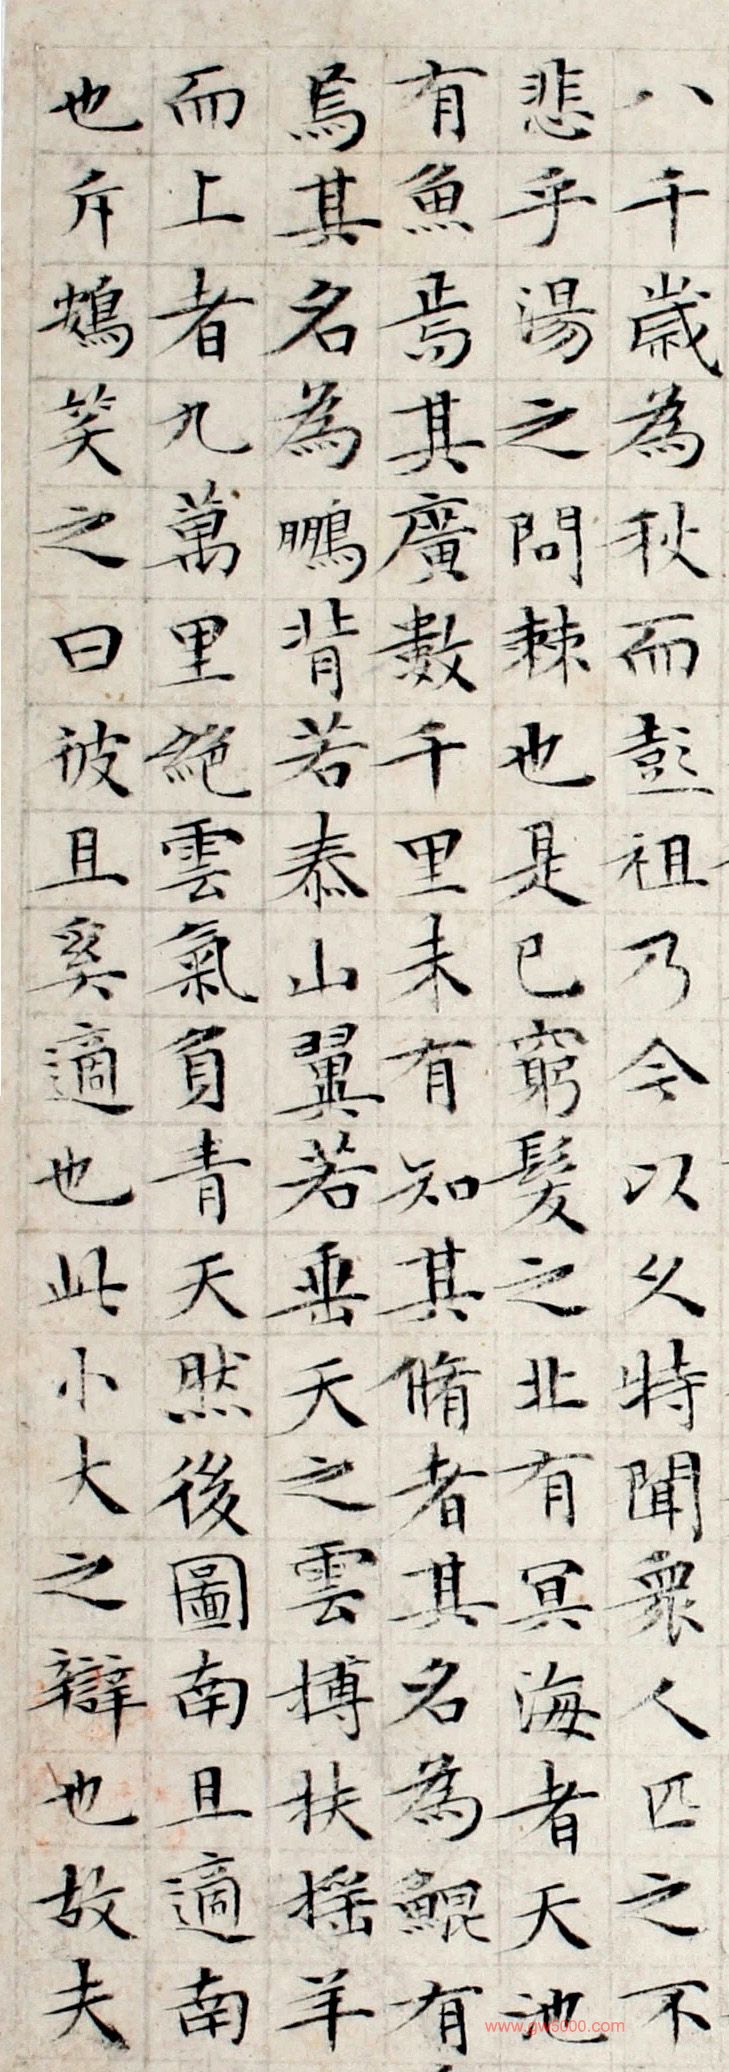 八千歲為秋而彭祖乃今以久特聞衆人匹之不
悲乎湯之問棘也是已窮髮之北有冥海者天池
有魚焉其廣數千里未有知其脩者其名為鯤有
鳥其名為鵬背若泰山翼若垂天之雲搏扶摇羊
而上者九萬里絶雲氣負青天然後圖南且適南
也斥鴳笑之曰彼且奚適也此小大之辯也故夫
www.gw5000.com